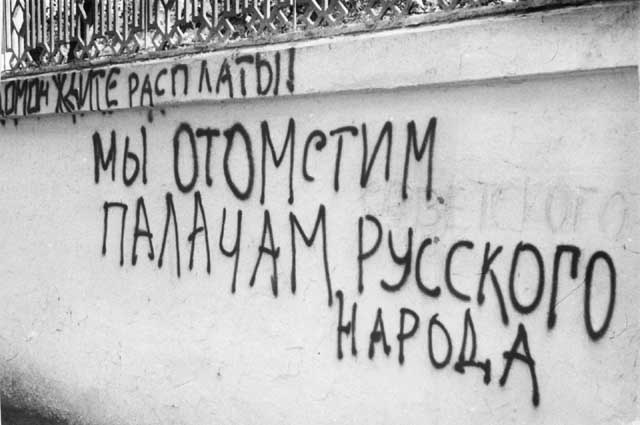 ОМОН ЖДИТЕ РАСПЛАТЫ!
МЫ ОТОМСТИМ
СОВЕТСКОГО
ПАЛАЧАМ РУССКОГО
НАРОДА